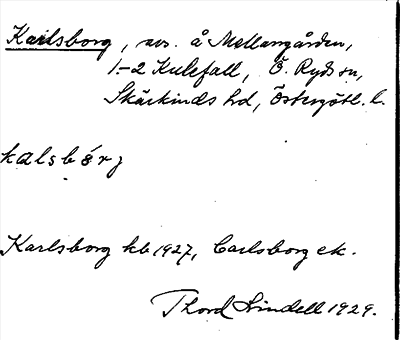 Karlsborg, avs. å Mellangården,
1-2 Kulefall, Ö. Ryds sn,
Skärkinds hd, Östergötl. l.
kalsbórj
Karlsborg kb 1927, Carlsborg ek.
Thord Lindell 1929.